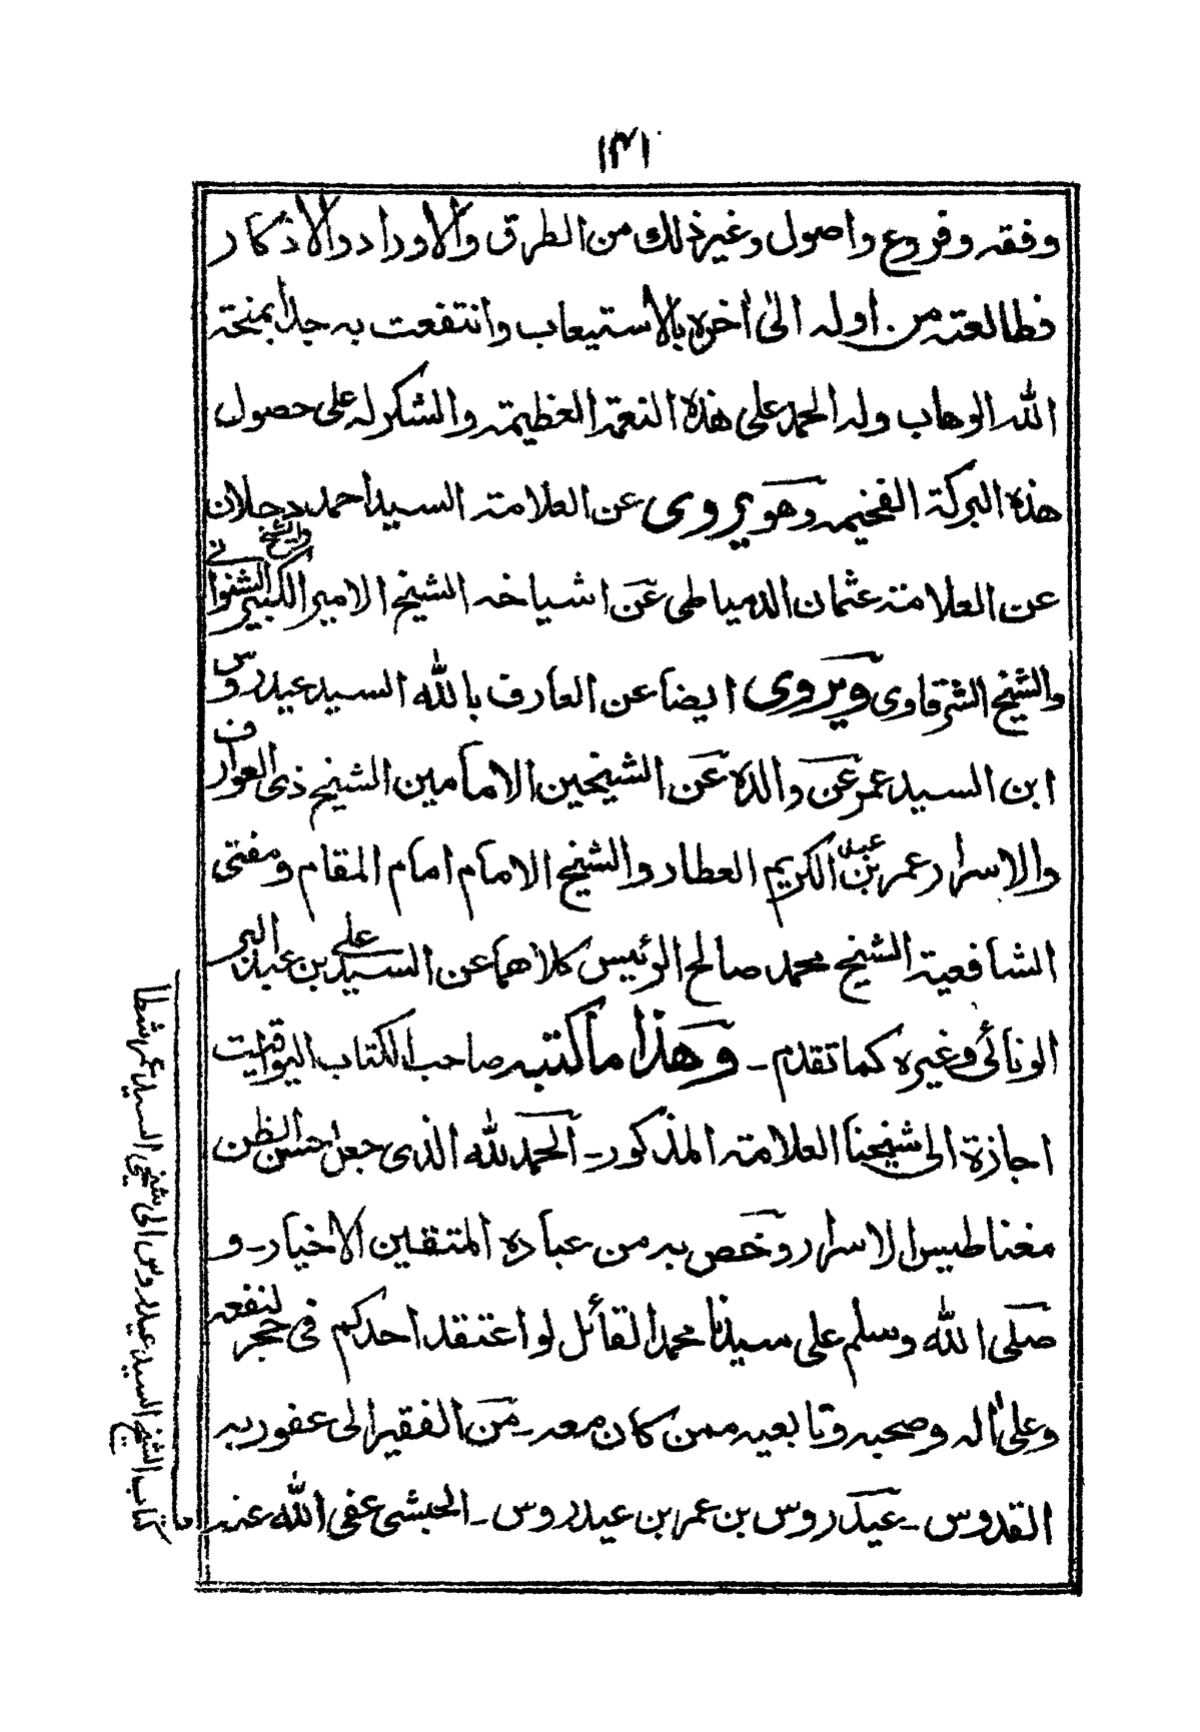 ١٣١
وفقه وفروع واصول وغير ذلك من الطرق والاوراد والاذكار
فطالعته من اوله الى أخره بالاستيعاب وانتفعت به جدا بمنحة
الله الوهاب وله الحمد على هذه النعمة العظيمة والشكر له على حصول
هذه البركة الفخيمه وهو يروى عن العلامة السيد احمد دحلان
عن العلامة عثمان الدمياطى عن اشياخه الشيخ الامير الكبير والشيخ الشنوانى
والشيخ الشرقاوى ويروى ايضا عن العارف بالله السيد عيدروس
ابن السيد عمر عن والده عن الشيخين الامامين الشيخ ذى العوارف
والاسرار عمر بن عبد الكريم العطار والشيخ الامام امام المقام ومفتى
الشافعية الشيخ محمد صالح الرئيس كلاهما عن السيد على بن عبد البر
الونائى وغيره كما تقدم ـ وهذا ما كتبه صاحب الكتاب اليواقيت
اجازة الى شيخنا العلامة المذكور ـ الحمد لله الذى جعل حسن الظن
مغناطيس الاسرار وخص به من عباده المتقين الاخيار ـ و
صلى الله وسلم على سيدنا محمد القائل لو اعتقد احدكم فى حجر لنفعه
وعلى أله وصحبه وتابعيه ممن كان معه ـ من الفقير الى عفو ربه
القدوس ـ عيدروس بن عمر ابن عيدروس ـ الحبشى عفى الله عنه
ما كتاب الشيخ السيد عيدروس الى شيخى السيد عمر شطا